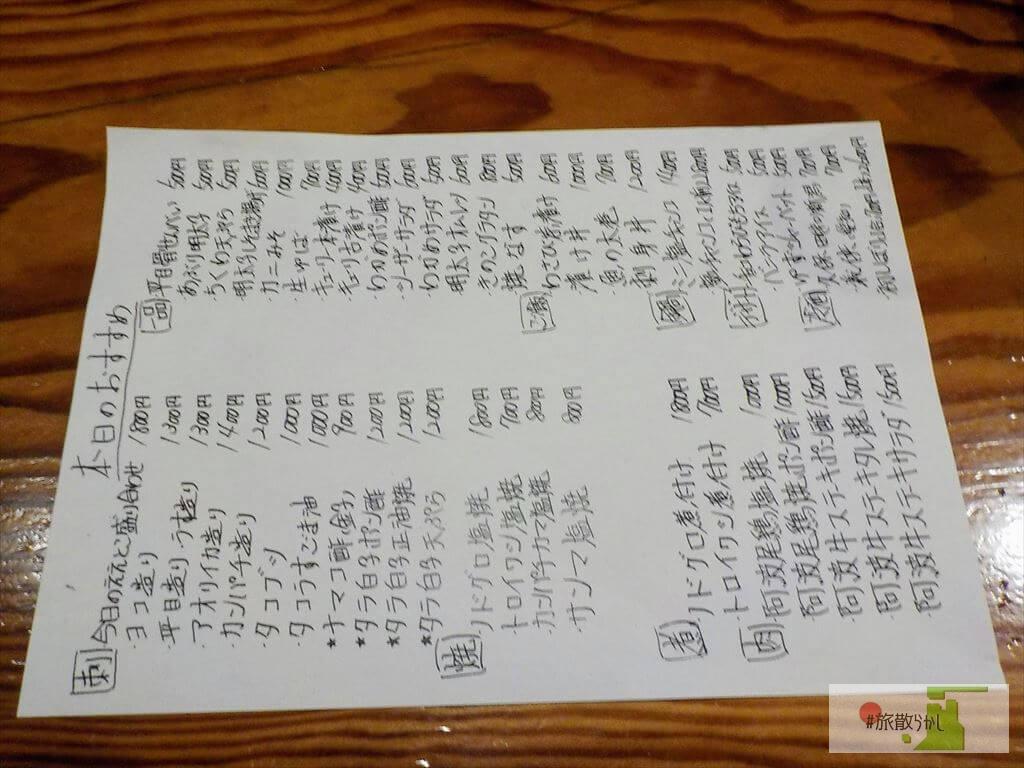 本日のおすすめ
刺
今日の盛り合わせ 1800円
・ヨコ造り 1300円
・平目造り・うす造り 1300円
・アオリイカ造り 1400円
・カンパチ造り 1200円
・タコブツ 1000円
・タコうすごま油 1000円
★ナマコ酢 900円
★タラ白子ポン酢 1200円
★タラ白子正油焼 1200円
★タラ白子天ぷら 1200円
焼
・ノドグロ塩焼 1800円
・トロイワシ塩焼 700円
・カンパチカマ塩焼 800円
・サンマ塩焼 800円
煮
・ノドグロ煮付け 1800円
・トロイワシ煮付け 700円
肉
・阿波尾鶏塩焼 1000円
・阿波尾鶏焼ポン酢 1000円
・阿波牛ステーキポン酢 1500円
・阿波牛ステーキタレ焼 1500円
・阿波牛ステーキサラダ 1500円
一品
平目骨せんべい 500円
あぶり明太子 500円
ちくわ天ぷら 500円
明太子 600円
・カニみそ
・生ゆば 700円
・キュウリ一本漬け 400円
・キュウリ古漬け 400円
・わかめポン酢 500円
・シーザーサラダ 600円
・わかめサラダ 500円
明太子オムレツ 600円
・きのこグラタン 800円
焼なす 500円
ご飯
わさび茶漬け 600円
・漬け丼 1000円
・魚の太巻 700円
・刺身丼 1200円
鍋
ミニ塩チャンコ
わらびもちアイス 500円
・バニラアイス 500円
・ゆずシャーベット 500円
700円
#旅散らかし